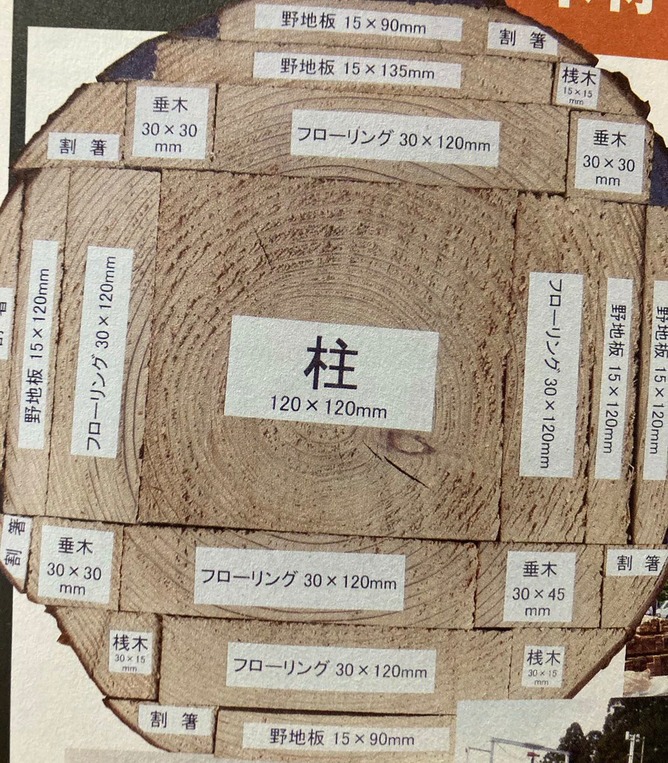 野地板 15×90mm
割 箸
野地板 15×135mm
桟木
15×15
mm
垂木
30×30
mm
フローリング 30×120mm
垂木
30×30
mm
割 箸
野地板 15×120mm
フローリング 30×120mm
柱
120×120mm
フローリング 30×120mm
野地板 15×120mm
野地板 15×120mm
割 箸
垂木
30×30
mm
フローリング 30×120mm
垂木
30×45
mm
割 箸
桟木
30×15
mm
フローリング 30×120mm
桟木
30×15
mm
割 箸
野地板 15×90mm